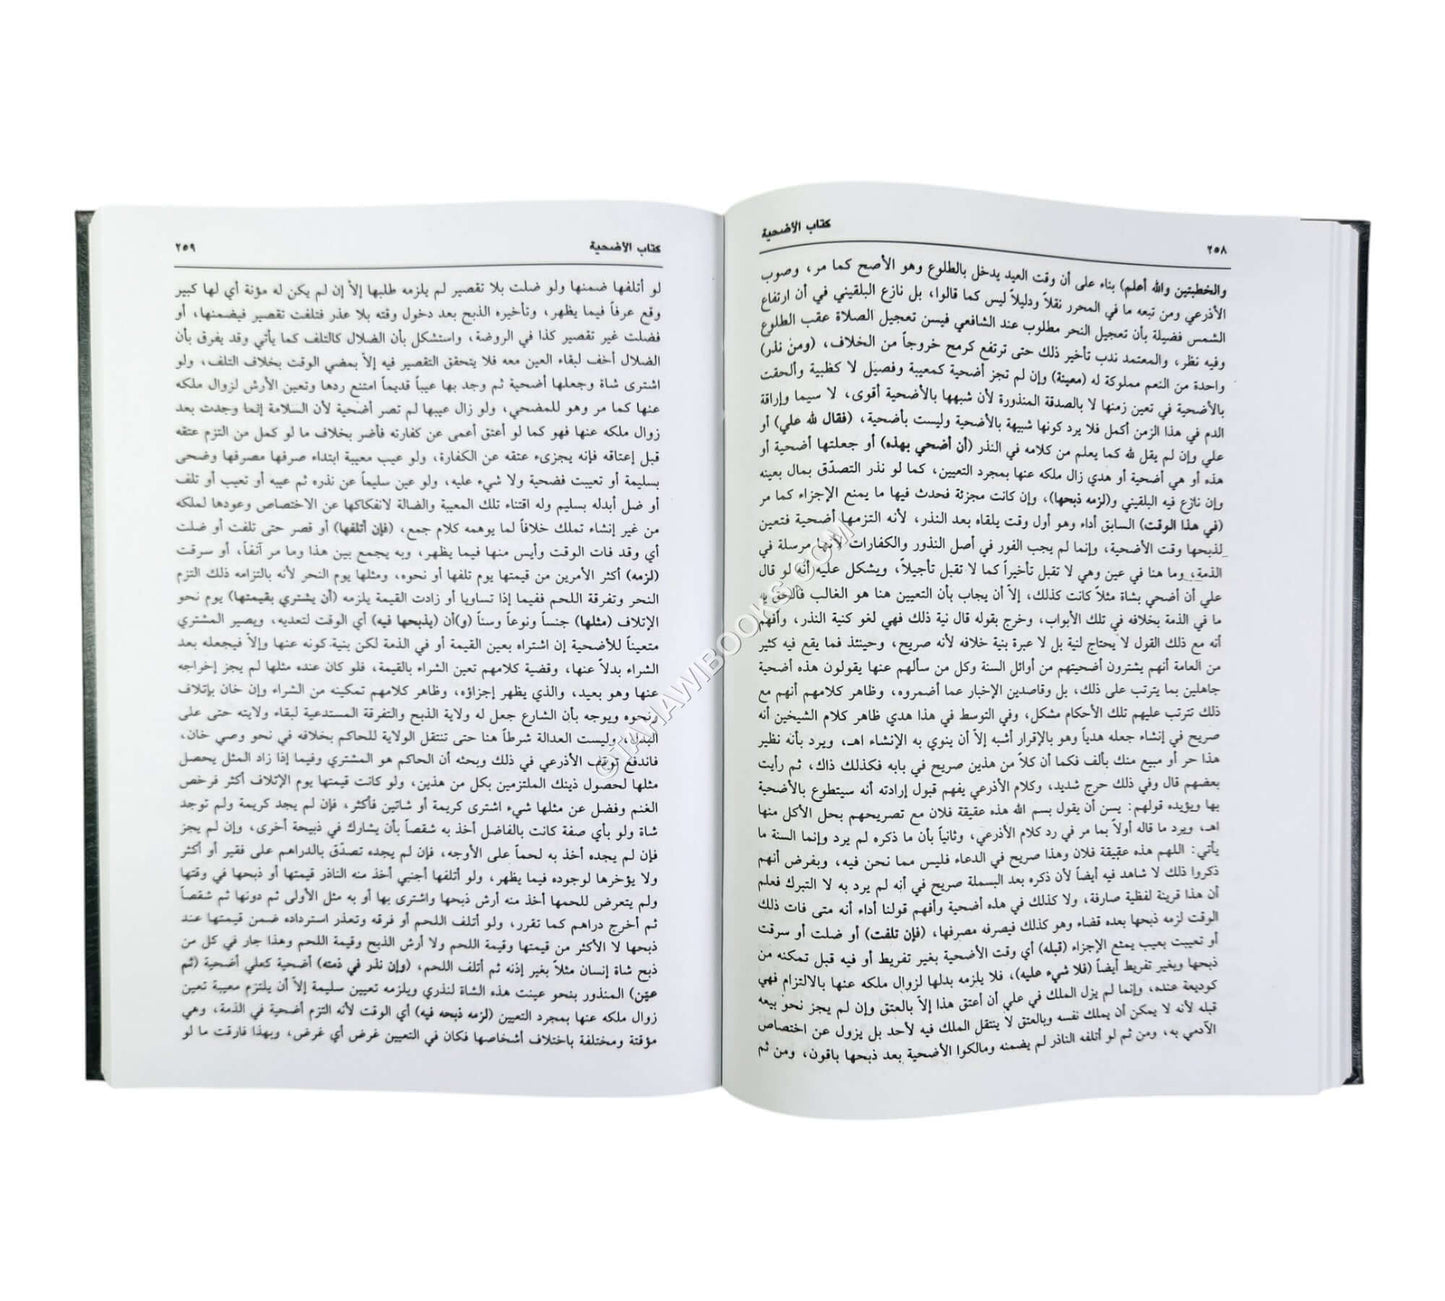 ٢٥٨
كتاب الأضحية
والخطبتين والله أعلم) بناء على أن وقت العيد يدخل بالطلوع وهو الأصح كما مر، وصوب
الأذرعي ومن تبعه ما في المحرر نقلاً ودليلاً ليس كما قالوا، بل نازع البلقيني في أن ارتفاع
الشمس فضيلة بأن تعجيل النحر مطلوب عند الشافعي فيسن تعجيل الصلاة عقب الطلوع
وفيه نظر، والمعتمد ندب تأخير ذلك حتى ترتفع كرمح خروجاً من الخلاف، (ومن نذر)
واحدة من النعم مملوكة له (معينة) وإن لم تجز أضحية كمعيبة وفصيل لا كظبية وألحقت
بالأضحية في تعين زمنها لا بالصدقة المنذورة لأن شبهها بالأضحية أقوى، لا سيما وإراقة
الدم في هذا الزمن أكمل فلا يرد كونها شبيهة بالأضحية وليست بأضحية، (فقال لله علي) أو
علي وإن لم يقل لله كما يعلم من كلامه في النذر (أن أضحي بهذه) أو جعلتها أضحية أو
هذه أو هي أضحية أو هدي زال ملكه عنها بمجرد التعيين، كما لو نذر التصدّق بمال بعينه
وإن نازع فيه البلقيني و(لزمه ذبحها)، وإن كانت مجزئة فحدث فيها ما يمنع الإجزاء كما مر
(في هذا الوقت) السابق أداء وهو أول وقت يلقاه بعد النذر، لأنه التزمها أضحية فتعين
لذبحها وقت الأضحية، وإنما لم يجب الفور في أصل النذور والكفارات لأنها مرسلة في
الذمة، وما هنا في عين وهي لا تقبل تأخيراً كما لا تقبل تأجيلاً، ويشكل عليه أنه لو قال
علي أن أضحي بشاة مثلاً كانت كذلك، إلاّ أن يجاب بأن التعيين هنا هو الغالب فألحق به
ما في الذمة بخلافه في تلك الأبواب، وخرج بقوله قال نية ذلك فهي لغو كنية النذر، وأفهم
أنه مع ذلك القول لا يحتاج لنية بل لا عبرة بنية خلافه لأنه صريح، وحينئذ فما يقع فيه كثير
من العامة أنهم يشترون أضحيتهم من أوائل السنة وكل من سألهم عنها يقولون هذه أضحية
جاهلين بما يترتب على ذلك، بل وقاصدين الإخبار عما أضمروه، وظاهر كلامهم أنهم مع
ذلك تترتب عليهم تلك الأحكام مشكل، وفي التوسط في هذا هدي ظاهر كلام الشيخين أنه
صريح في إنشاء جعله هدياً وهو بالإقرار أشبه إلاّ أن ينوي به الإنشاء اهـ، ويرد بأنه نظير
هذا حر أو مبيع منك بألف فكما أن كلاً من هذين صريح في بابه فكذلك ذاك، ثم رأيت
بعضهم قال وفي ذلك حرج شديد، وكلام الأذرعي يفهم قبول إرادته أنه سيتطوع بالأضحية
بها ويؤيده قولهم: يسن أن يقول بسم الله هذه عقيقة فلان مع تصريحهم بحل الأكل منها
اهـ، ويرد ما قاله أولاً بما مر في رد كلام الأذرعي، وثانياً بأن ما ذكره لم يرد وإنما السنة ما
يأتي: اللهم هذه عقيقة فلان وهذا صريح في الدعاء فليس مما نحن فيه، وبفرض أنهم
ذكروا ذلك لا شاهد فيه أيضاً لأن ذكره بعد البسملة صريح في أنه لم يرد به إلا التبرك فعلم
أن هذا قرينة لفظية صارفة، ولا كذلك في هذه أضحية وأفهم قولنا أداء أنه متى فات ذلك
الوقت لزمه ذبحها بعده قضاء وهو كذلك فيصرفه مصرفها، (فإن تلفت) أو ضلت أو سرقت
أو تعيبت بعيب يمنع الإجزاء (قبله) أي وقت الأضحية بغير تفريط أو فيه قبل تمكنه من
ذبحها وبغير تفريط أيضاً (فلا شيء عليه)، فلا يلزمه بدلها لزوال ملكه عنها بالالتزام فهي
كوديعة عنده، وإنما لم يزل الملك في علي أن أعتق هذا إلاّ بالعتق وإن لم يجز نحو بيعه
قبله لأنه لا يمكن أن يملك نفسه وبالعتق لا ينتقل الملك فيه لأحد بل يزول عن اختصاص
الآدمي به، ومن ثم لو أتلفه الناذر لم يضمنه ومالكوا الأضحية بعد ذبحها باقون، ومن ثم
كتاب الأضحية
٢٥٩
لو أتلفها ضمنها ولو ضلت بلا تقصير لم يلزمه طلبها إلاّ إن لم يكن له مؤنة أي لها كبير
وقع عرفاً فيما يظهر، وتأخيره الذبح بعد دخول وقته بلا عذر فتلفت تقصير فيضمنها، أو
فضلت غير تقصير كذا في الروضة، واستشكل بأن الضلال كالتلف كما يأتي وقد يفرق بأن
الضلال أخف لبقاء العين معه فلا يتحقق التقصير فيه إلاّ بمضي الوقت بخلاف التلف، ولو
اشترى شاة وجعلها أضحية ثم وجد بها عيباً قديماً امتنع ردها وتعين الأرش لزوال ملكه
عنها كما مر وهو للمضحي، ولو زال عيبها لم تصر أضحية لأن السلامة إنما وجدت بعد
زوال ملكه عنها فهو كما لو أعتق أعمى عن كفارته فأبصر بخلاف ما لو كمل من التزم عتقه
قبل إعتاقه فإنه يجزىء عتقه عن الكفارة، ولو عيب معيبة ابتداء صرفها مصرفها وضحى
بسليمة أو تعيبت فضحية ولا شيء عليه، ولو عين سليماً عن نذره ثم عيبه أو تعيب أو تلف
أو ضل أبدله بسليم وله اقتناء تلك المعيبة والضالة لانفكاكها عن الاختصاص وعودها لملكه
من غير إنشاء تملك خلافاً لما يوهمه كلام جمع، (فإن أتلفها) أو قصر حتى تلفت أو ضلت
أي وقد فات الوقت وأيس منها فيما يظهر، وبه يجمع بين هذا وما مر آنفاً، أو سرقت
(لزمه) أكثر الأمرين من قيمتها يوم تلفها أو نحوه، ومثلها يوم النحر لأنه بالتزامه ذلك التزم
النحر وتفرقة اللحم ففيما إذا تساويا أو زادت القيمة يلزمه (أن يشتري بقيمتها) يوم نحو
الإتلاف (مثلها) جنساً ونوعاً وسناً (و)أن (يذبحها فيه) أي الوقت لتعديه، ويصير المشتري
متعيناً للأضحية إن اشتراه بعين القيمة أو في الذمة لكن بنية كونه عنها وإلاّ فيجعله بعد
الشراء بدلاً عنها، وقضية كلامهم تعين الشراء بالقيمة، فلو كان عنده مثلها لم يجز إخراجه
عنها وهو بعيد، والذي يظهر إجزاؤه، وظاهر كلامهم تمكينه من الشراء وإن خان بإتلاف
ونحوه ويوجه بأن الشارع جعل له ولاية الذبح والتفرقة المستدعية لبقاء ولايته حتى على
البدل، وليست العدالة شرطاً هنا حتى تنتقل الولاية للحاكم بخلافه في نحو وصي خان،
فاندفع توقف الأذرعي في ذلك وبحثه أن الحاكم هو المشتري وفيما إذا زاد المثل يحصل
مثلها لحصول ذينك الملتزمين بكل من هذين، ولو كانت قيمتها يوم الإتلاف أكثر فرخص
الغنم وفضل عن مثلها شيء اشترى كريمة أو شاتين فأكثر، فإن لم يجد كريمة ولم توجد
شاة ولو بأي صفة كانت بالفاضل أخذ به شقصاً بأن يشارك في ذبيحة أخرى، وإن لم يجز
فإن لم يجده أخذ به لحماً على الأوجه، فإن لم يجده تصدّق بالدراهم على فقير أو أكثر
ولا يؤخرها لوجوده فيما يظهر، ولو أتلفها أجنبي أخذ منه الناذر قيمتها أو ذبحها في وقتها
ولم يتعرض للحمها أخذ منه أرش ذبحها واشترى بها أو به مثل الأولى ثم دونها ثم شقصاً
ثم أخرج دراهم كما تقرر، ولو أتلف اللحم أو فرقه وتعذر استرداده ضمن قيمتها عند
ذبحها لا الأكثر من قيمتها وقيمة اللحم ولا أرش الذبح وقيمة اللحم وهذا جار في كل من
ذبح شاة إنسان مثلاً بغير إذنه ثم أتلف اللحم، (وإن نذر في ذمته) أضحية كعلي أضحية (ثم
عيّن) المنذور بنحو عينت هذه الشاة لنذري ويلزمه تعيين سليمة إلاّ أن يلتزم معيبة تعين
زوال ملكه عنها بمجرد التعيين (لزمه ذبحه فيه) أي الوقت لأنه التزم أضحية في الذمة، وهي
مؤقتة ومختلفة باختلاف أشخاصها فكان في التعيين غرض أي غرض، وبهذا فارقت ما لو
©TAHAWIBOOKS.COM